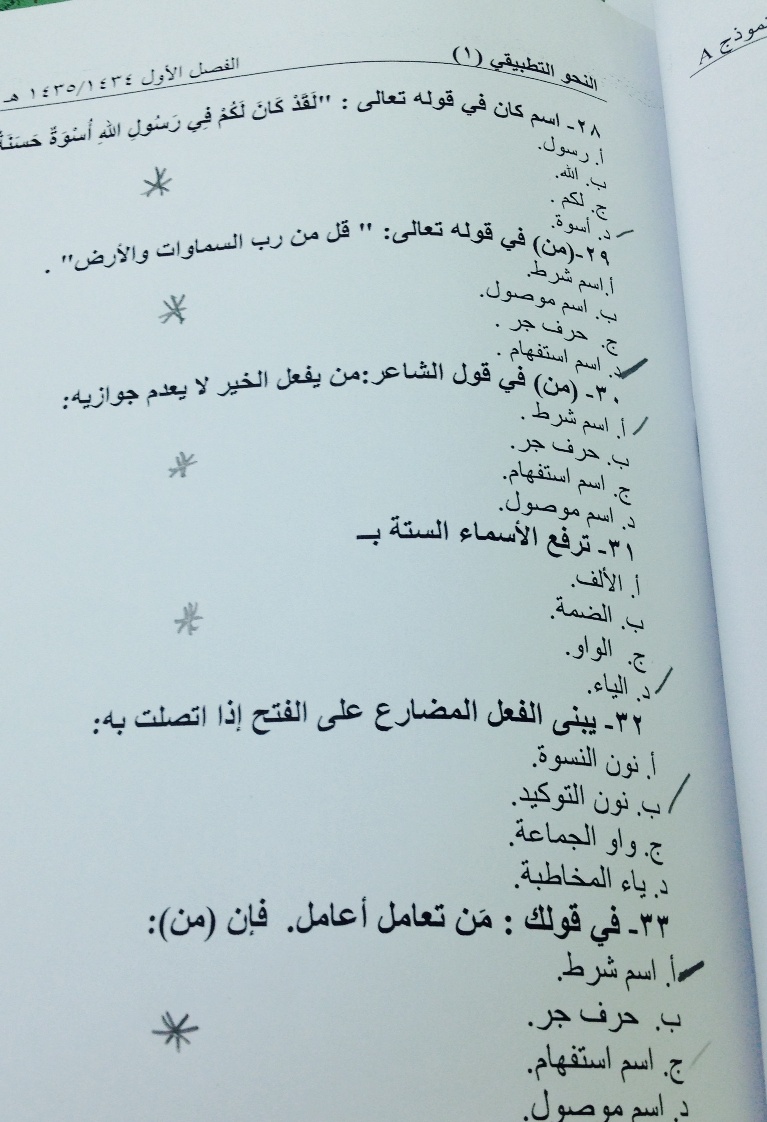 نموذج A
النحو التطبيقي (١) الفصل الأول ١٤٣٥/١٤٣٤ هـ
٢٨- اسم كان في قوله تعالى : "لَقَدْ كَانَ لَكُمْ فِي رَسُولِ اللهِ أُسْوَةٌ حَسَنَةٌ
أ. رسول.
ب. الله.
ج. لكم .
د. أسوة.
٢٩-(من) في قوله تعالى: " قل من رب السماوات والأرض" .
أ.اسم شرط.
ب. اسم موصول.
ج. حرف جر .
د. اسم استفهام .
٣٠- (من) في قول الشاعر:من يفعل الخير لا يعدم جوازيه:
أ. اسم شرط .
ب. حرف جر.
ج. اسم استفهام.
د. اسم موصول.
٣١- ترفع الأسماء الستة بـ
أ. الألف.
ب. الضمة.
ج. الواو.
د. الياء.
٣٢- يبنى الفعل المضارع على الفتح إذا اتصلت به:
أ. نون النسوة.
ب. نون التوكيد.
ج. واو الجماعة.
د. ياء المخاطبة.
٣٣- في قولك : مَن تعامل أعامل. فإن (من):
أ. اسم شرط.
ب. حرف جر.
ج. اسم استفهام.
د. اسم موصول.